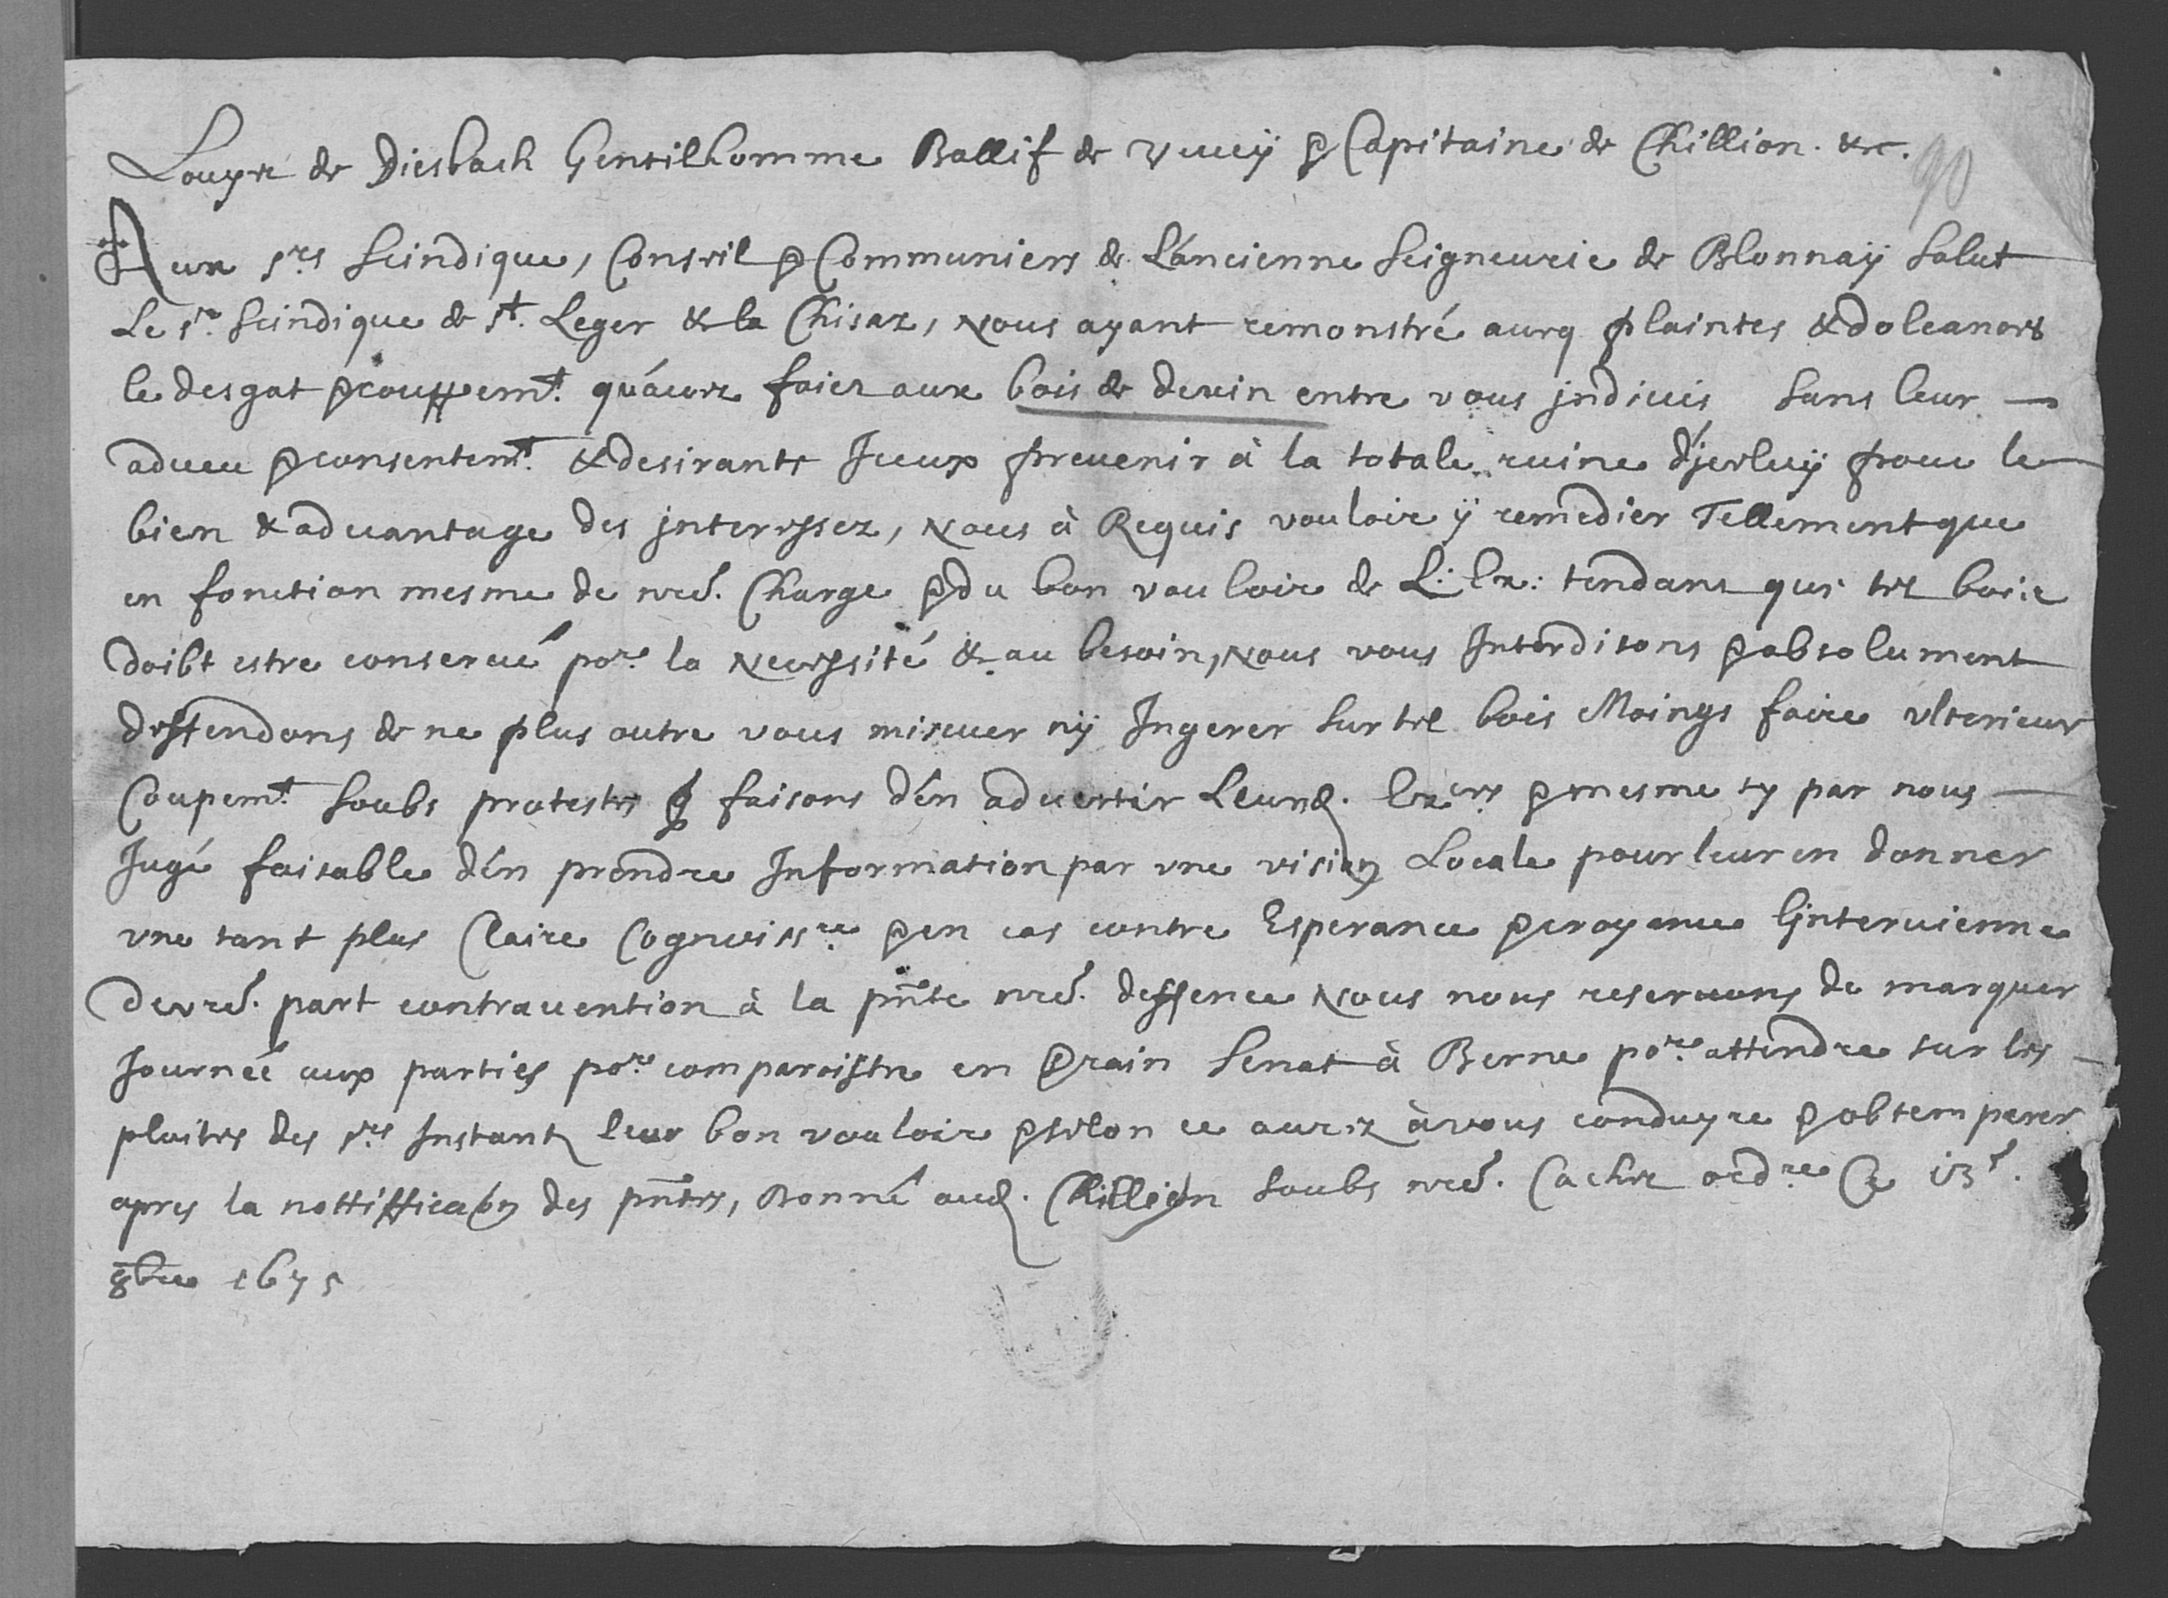 Louys de Diesbach Gentilhomme Ballif de Vevey & Capitaine de Chillion. &c.
90
Aux srs Scindique, Conseil & Communiers de L'ancienne Seigneurie de Blonnaÿ Salut
Le sr. Scindique de st. Leger & la Chisaz, Nous ayant remonstré avec plaintes & doleances
le desgat & couppemt. qu'avez faict aux bois de devin entre vous jndivis Sans leur
adveu & consentemt. & desirants Iceux prevenir à la totale ruine d'jceluÿ pour le
bien & advantage des jnteressez, Nous à Requis vouloir ÿ remedier Tellement que
en fonction mesme de nre. Charge & du bon vouloir de L: Ex: tendant que tel bois
doibt estre conservé por. la Necessité & au besoin, Nous vous Interdisons & absolument
deffendons de ne plus outre vous ny Ingerer sur tel bois Moings faire ulterieur
Coupemt. Soubs protestes faisons d'en advertir Leursd. Exces & mesme sy par nous
Jugé faisable d'en prendre Information par une vision Locale pour leur en donner
une tant plus Claire Cognoissce. & en cas contre Esperance & croyance Il jntervienne
de vre. part contravention à la pnte nre. deffence Nous nous reservons de marquer
Journée aux parties por. comparoistre en Senat à Berne por. attendre sur les
plaites des srs Instants leur bon vouloir & selon ce aurez à vous conduyre & obtemperer
apres la nottiffication des pntes, Donné aud. Chillion Soubs nre. Cachet ordre Ce 13e.
8bre 1675